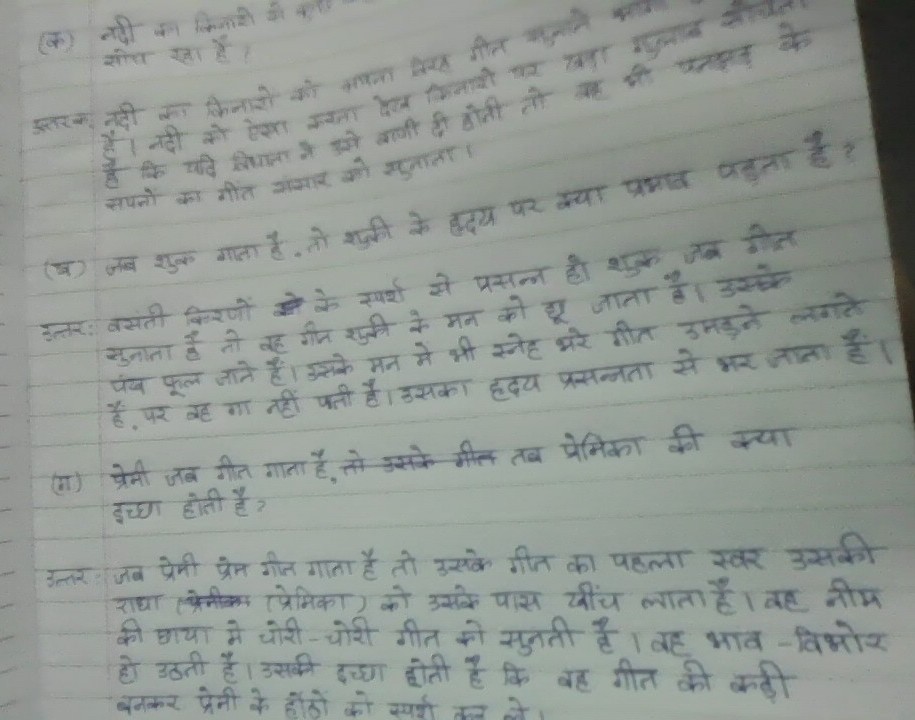 (क) नदी का किनारों से कुछ
सोच रहा है ?
उत्तर क: नदी का किनारों को अपना विरह गीत सुनाते
है। नदी को ऐसा करता देख किनारे पर खड़ा गुलाब सोचता
है कि यदि विधाता ने उसे वाणी दी होती तो वह भी पतझड़ के
सपनों का गीत संसार को सुनाता।
(ख) जब शुक गाता है, तो शुकी के हृदय पर क्या प्रभाव पड़ता है ?
उत्तर: वसंती किरणों के स्पर्श से प्रसन्न हो शुक जब गीत
सुनाता है तो वह गीत शुकी के मन को छू जाता है। उसके
पंख फूल जाते हैं। उसके मन में भी स्नेह भरे गीत उमड़ने लगते
हैं, पर वह गा नहीं पाती है। उसका हृदय प्रसन्नता से भर जाता है।
(ग) प्रेमी जब गीत गाता है, तो उसके गीत तब प्रेमिका की क्या
इच्छा होती है ?
उत्तर: जब प्रेमी प्रेम गीत गाता है तो उसके गीत का पहला स्वर उसकी
राधा (प्रेमिका) को उसके पास खींच लाता है। वह नीम
की छाया मे चोरी-चोरी गीत को सुनती है। वह भाव-विभोर
हो उठती है। उसकी इच्छा होती है कि वह गीत की कड़ी
बनकर प्रेमी के होंठों को स्पर्श कर ले।